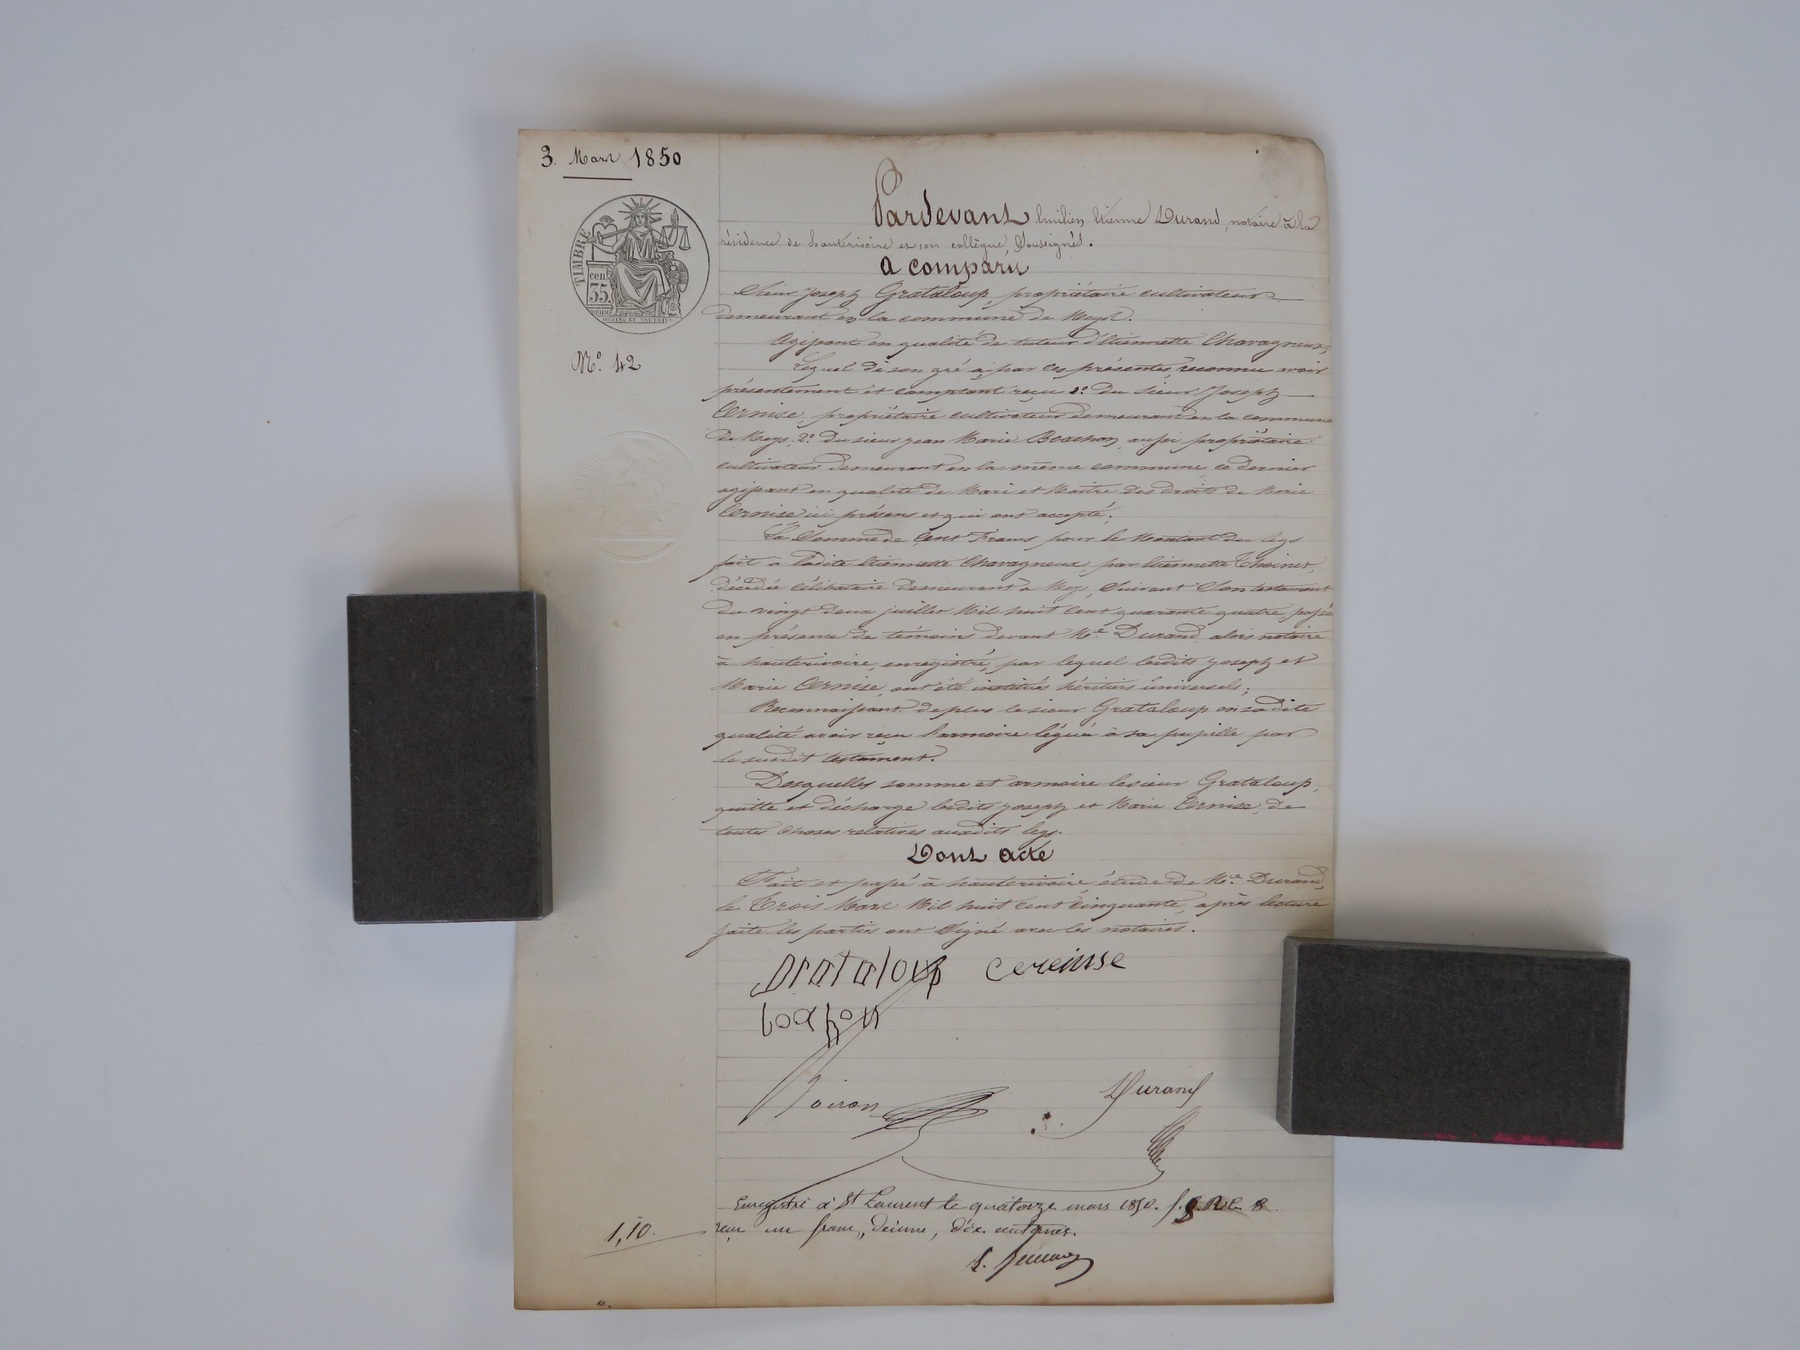 3. Mars 1850
TIMBRE
cen.
35.
N.º 42
Pardevant Emilien Etienne Durand, notaire à la
résidence de hauterivoire et son collègue, Soussignés.
a comparu
Sieur Joseph Grataloup, propriétaire cultivateur
demeurant en la commune de Meys.
Agissant en qualité de tuteur d'Etiennette Chavagneux,
Lequel de son gré a par ces présentes, reconnu avoir
présentement et comptant reçu 1º. du sieur Joseph
Cernise, propriétaire cultivateur demeurant en la commune
de Meys, 2º. du sieur jean Marie Bouchon, aussi propriétaire
cultivateur demeurant en la même commune, ce dernier
agissant en qualité de Mari et Maître des droits de Marie
Cernise ici présens et qui ont accepté.
La Somme de Cent Francs pour le Montant du legs
fait à ladite Etiennette Chavagneux, par Etiennette Thoinet,
décédée célibataire demeurant à Meys, Suivant Son testament
du vingt deux juillet Mil huit cent quarante quatre, passé
en présence de témoins devant Me. Durand, alors notaire
à hauterivoire, enregistré, par lequel lesdits Joseph et
Marie Cernise, ont été institués héritiers universels;
Reconnaissant de plus le sieur Grataloup en sa dite
qualité avoir reçu l'armoire léguée à sa pupille par
le susdit testament.
Desquelles somme et armoire le sieur Grataloup,
quitte et décharge lesdits Joseph et Marie Cernise, de
toutes choses relatives auxdits legs.
Dont acte
Fait et passé à hauterivoire étude de Me. Durand,
le Trois Mars Mil huit cent cinquante, après lecture
faite les parties ont Signé avec les notaires.
Grataloup cereinse
Voiron
Durand
Enregistré à St Laurent le quatorze mars 1850. f.
reçu un franc, décime, dix centimes.
1,10.